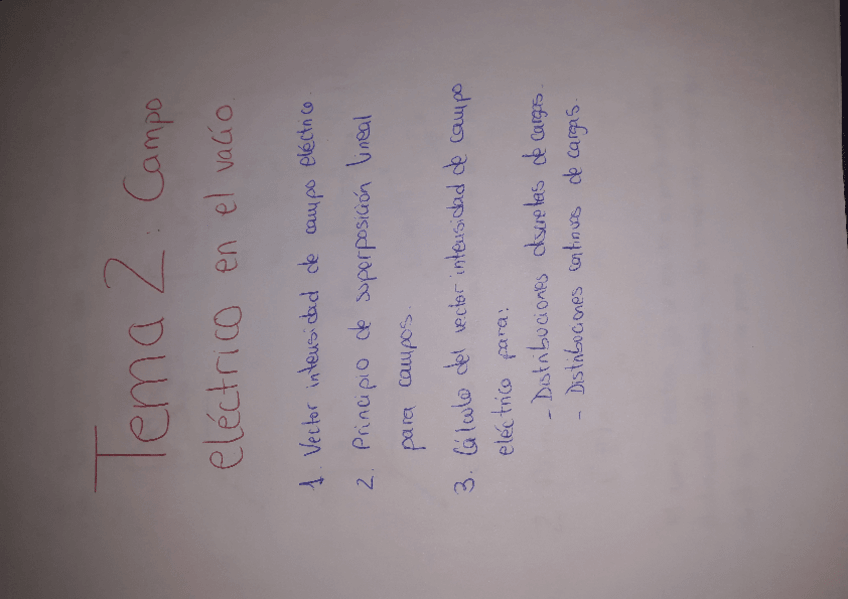 Tema 2: Campo
eléctrico en el vacío.
1. Vector intensidad de campo eléctrico.
2. Principio de superposición lineal
para campos.
3. Cálculo del vector intensidad de campo
eléctrico para:
- Distribuciones discretas de cargas.
- Distribuciones continuas de cargas.